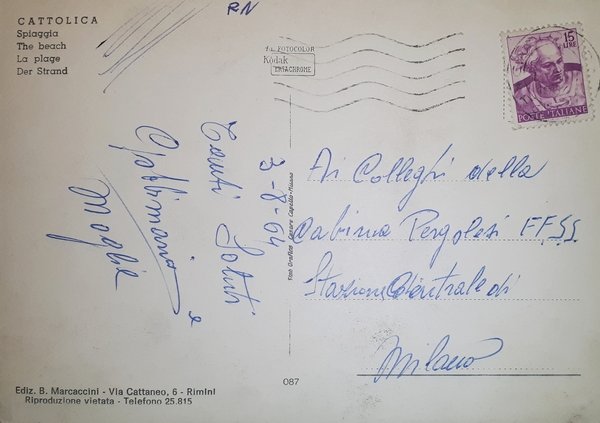 CATTOLICA
Spiaggia
The beach
La plage
Der Strand
RN
da FOTOCOLOR
Kodak
EKTACHROME
15
LIRE
POSTE ITALIANE
3-8-64
Tanti Saluti
e
Moglie
Ai Colleghi della
Cabina Pergolesi FF.SS.
Stazione Centrale di
Milano
Stab. Grafico Cesare Capello-Milano
087
Ediz. B. Marcaccini - Via Cattaneo, 6 - Rimini
Riproduzione vietata - Telefono 25.815